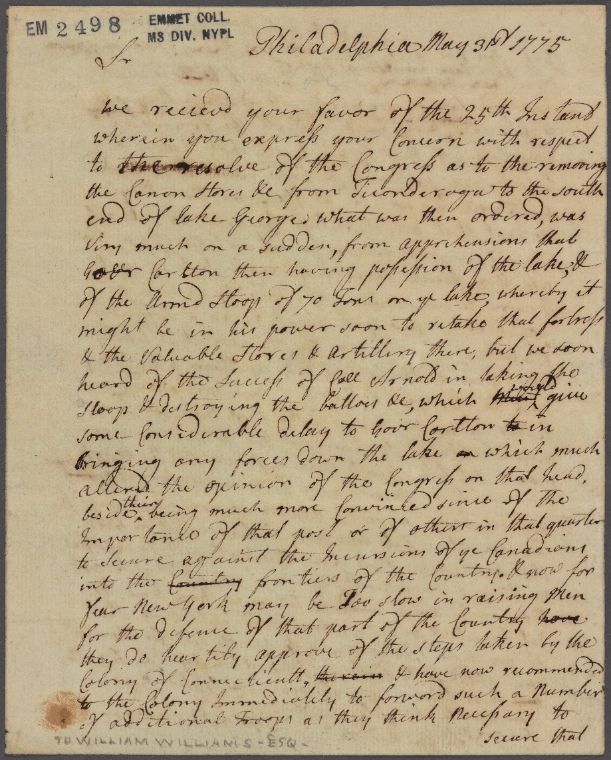 EM 2498
EMMET COLL.
MS DIV. NYPL
Philadelphia May 31st 1775
Sr
we recievd your favor of the 25th Instant
wherein you express your Concern with respect
to the resolve of the Congress as to the removing
the Canon Stores &c from Ticonderoga to the south
end of lake George, what was then ordered, was
Very much on a sudden, from apprehensions that
Govr Carlton then having possession of the lake, &
of the Armd Sloop of 70 Tons on ye lake, whereby it
might be in his power soon to retake that fortress
& the Valuable Stores & Artillery there, but we soon
heard of the Success of Coll Arnold in taking the
Sloop & destroying the battoes &c, which would give
some Considerable delay to Govr Carlton to in
bringing any forces down the lake on which much
altered the opinion of the Congress on that head,
beside their being much more Convinced since of the
Importance of that post or of others in that quarter
to Secure against the Incursions of ye Canadians
into the Country frontiers of the Country. & now for
fear New York may be Too slow in raising Men
for the defense of that part of the Country have
they do heartily approve of the steps taken by the
Colony of Connecticutt, therein & have now recommended
to the Colony Immediately to forward such a Number
of additional Troops as they think Necessary to
secure that
TO WILLIAM WILLIAMS - ESQ -